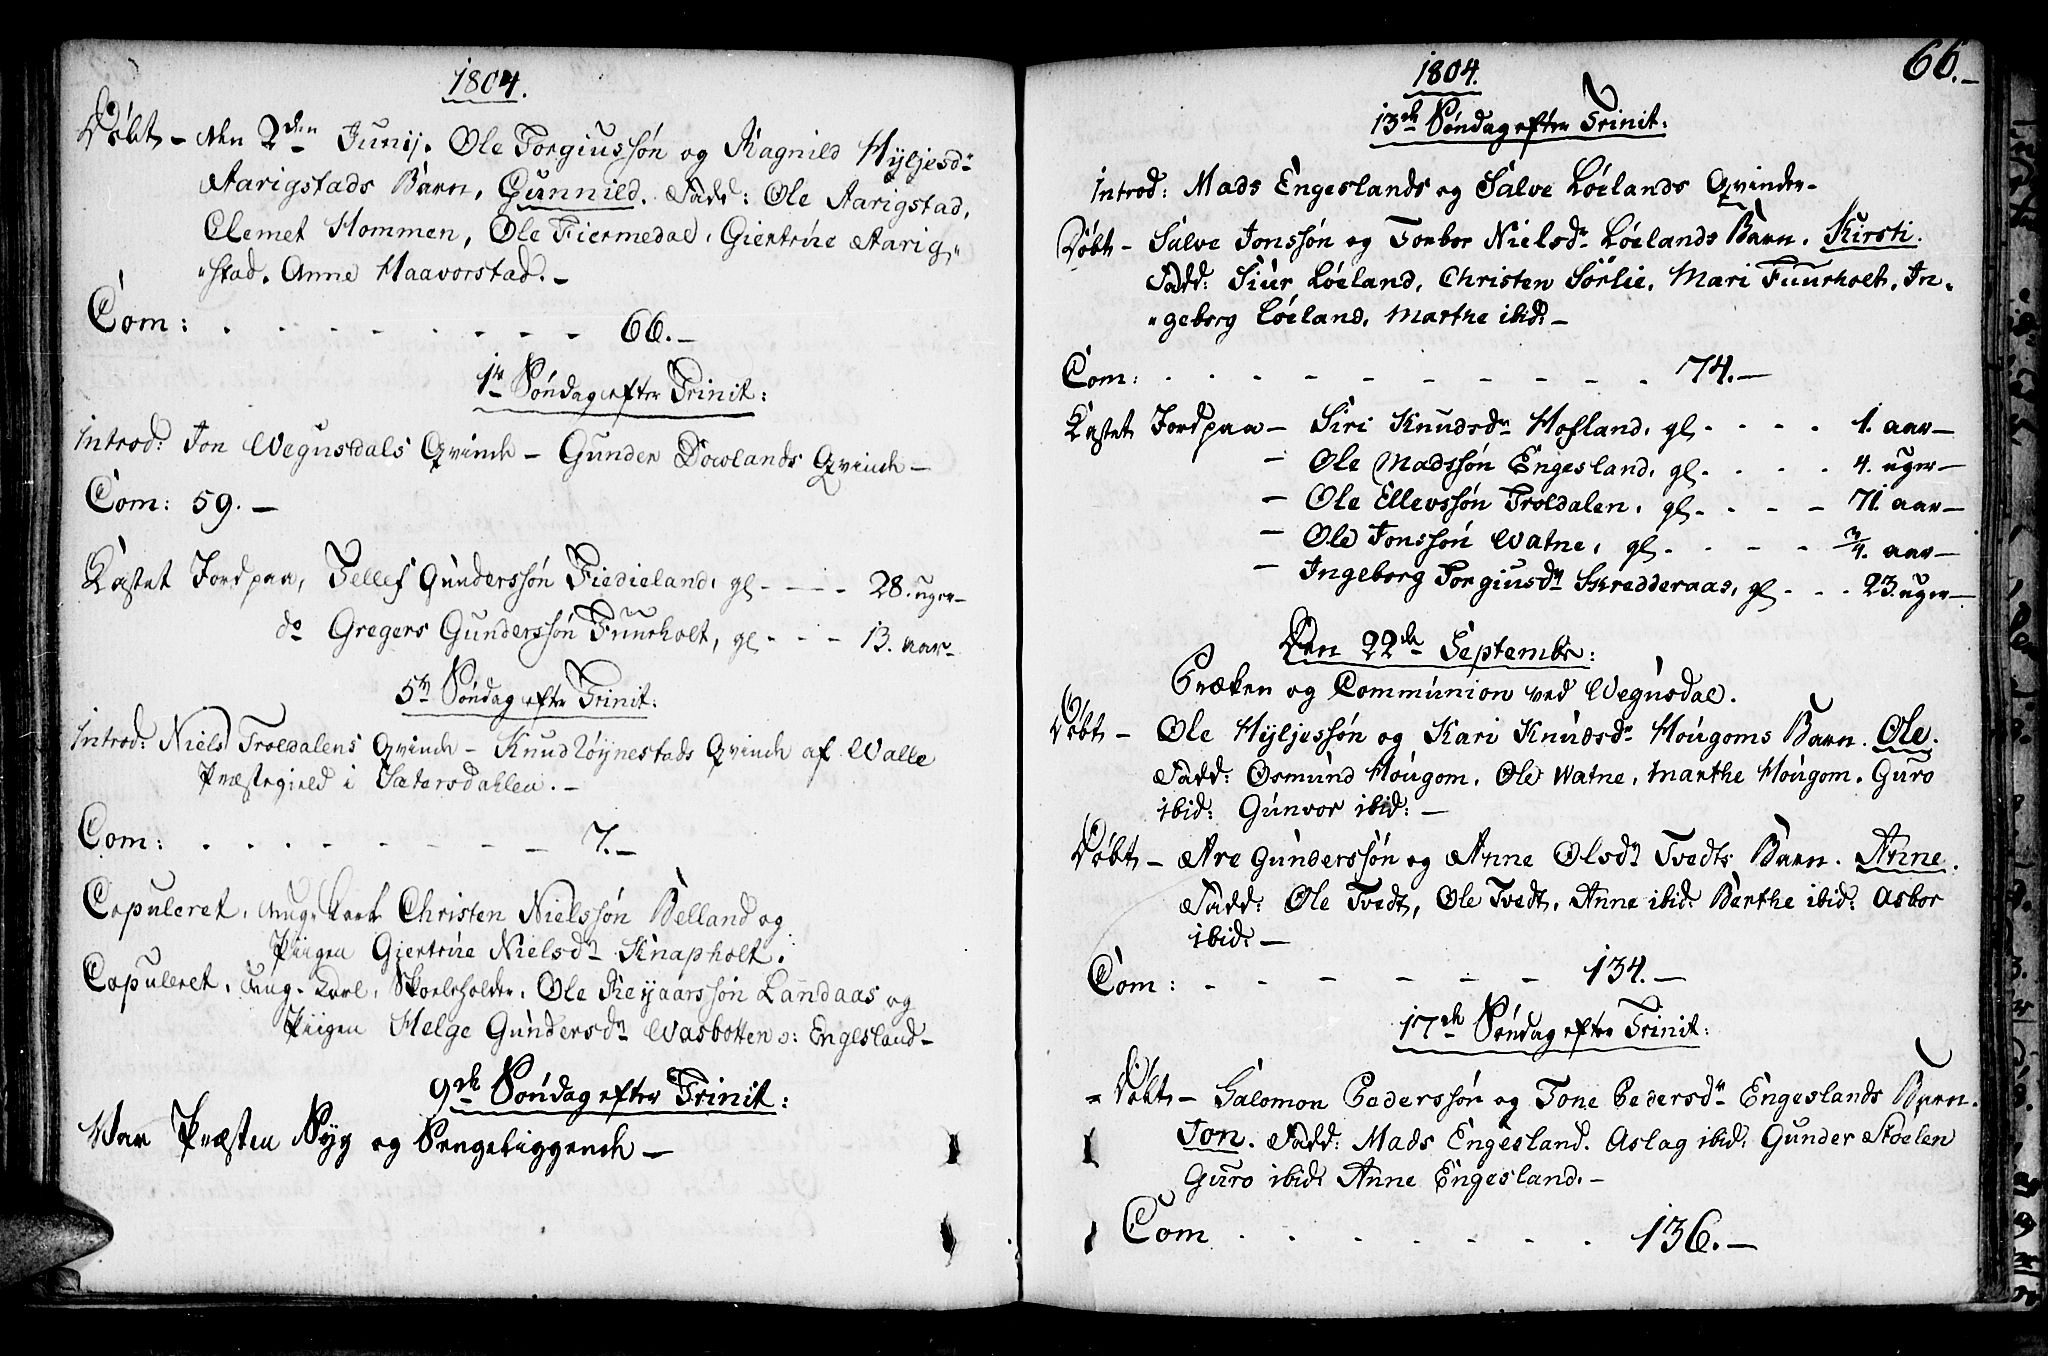 1804.
Døbt – den 2den Junij. Ole Torgiussøn og Ragnild Hyljesdr
Aarigstads Barn, Gunnild. Fadd: Ole Aarigstad,
Clemet Hommen, Ole Fiermedal, Giertrue Aarig„
„stad. Anne Haavorstad. –
Com: . - - - - - - - 66. –
1te Søndag efter Trinit:
Introd: Jon Wegusdals Qvinde – Gunder Dowlands Qvinde –
Com: 59. –
Kastet Jord paa, Tellef Gunderssøn Fiedieland, gl - - - - 28. uger –
do Gregers Gunderssøn Fuurholt, gl - - - 13. aar –
5te Søndag efter Trinit:
Introd: Niels Troldalens Qvinde – Knud Røynestads Qvinde af Walle
Præstegield i Sætersdahlen. –
Com: . . . . - - - - 7. –
Copuleret, Ung-Karl Christen Nielssøn Belland og
Piigen Giertrue Nielsdr Knapholt.
Copuleret, Ung-Karl, Skoleholder, Ole Reijaarssøn Landaas og
Piigen Helge Gundersdr Wasbotten o: Engesland –
9de Søndag efter Trinit:
War Præsten Syg og Sengeliggende –
66. –
1804.
13de Søndag efter Trinit:
Introd: Mads Engeslands og Salve Løelands Qvinder –
Døbt – Salve Jonssøn og Torbor Nielsdr Løelands Barn. Kirsti.
Fadd: Siur Løeland, Christen Sørlie, Mari Fuurholt, In„
„geborg Løeland, Marthe ibid: –
Com: . . . - - - - - - - . 74. –
Kastet Jord paa – Siri Knudsdr Hofland, gl - - - - 1. aar –
– Ole Madssøn Engesland, gl - - - - 4. uger –
– Ole Ellevssøn Troldalen, gl - - - - 71. aar –
– Ole Jonssøn Watne, gl - - - - 3/4. aar –
– Ingeborg Torgiusdr Skredderaas, gl - - - 23. uger –
Den 22de Septembr:
Præken og Communion ved Wegusdal.
Døbt – Ole Hyljessøn og Kari Knudsdr Hougoms Barn. Ole.
Fadd: Osmund Hougom, Ole Watne, Marthe Hougom. Guro
ibid: Gunvor ibid: –
Døbt – Are Gunderssøn og Anne Olsdr Tvedts Barn. Anne.
Fadd: Ole Tvedt, Ole Tvedt, Anne ibid: Berthe ibid: Asbor
ibid: –
Com: - - - - - - - 134. –
17de Søndag efter Trinit:
= Døbt – Salomon Pederssøn og Tone Pedersdr Engeslands Barn.
Jon. Fadd: Mads Engesland. Aslag ibid: Gunder Støelen
Guro ibid: Anne Engesland. –
Com . . . . . . . . 136. –